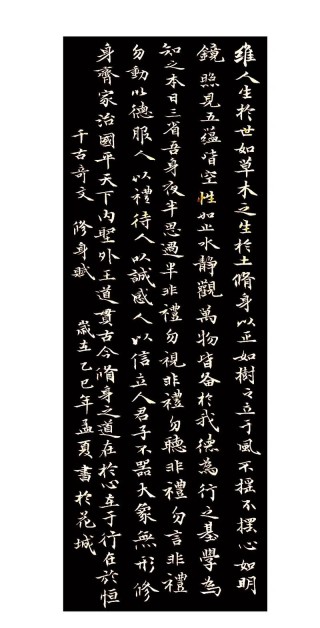 維人生於世如草木之生於土脩身以正如樹之立于風不摇不摆心如明
鏡照見五蕴皆空性如止水静觀萬物皆备於我德為行之基學為
知之本日三省吾身夜半思過半非禮勿視非禮勿聽非禮勿言非禮
勿動以德服人以禮待人以誠感人以信立人君子不器大象無形修
身齊家治國平天下內聖外王道貫古今脩身之道在於心在于行在於恒
千古奇文 修身賦 歲在乙巳年孟夏書於花城